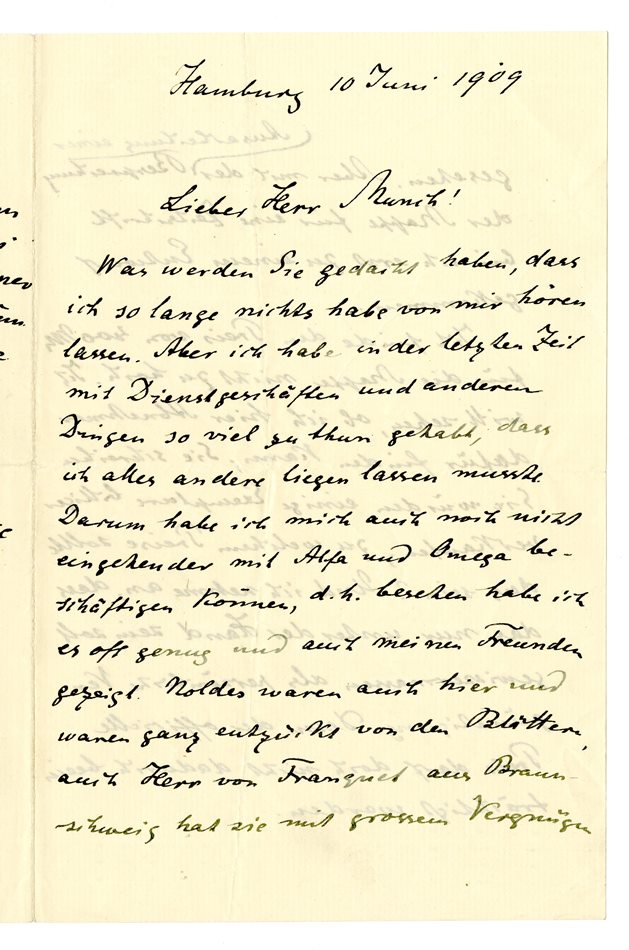 Hamburg 10 Juni 1909
Lieber Herr Munch!
Was werden Sie gedacht haben, dass
ich so lange nichts habe von mir hören
lassen. Aber ich habe in der letzten Zeit
mit Dienstgeschäften und anderen
Dingen so viel zu thun gehabt, dass
ich alles andere liegen lassen musste.
Darum habe ich mich auch noch nicht
eingehender mit Alfa und Omega be-
schäftigen können, d. h. besehen habe ich
es oft genug und auch meinen Freunden
gezeigt. Noldes waren auch hier und
waren ganz entzückt von den Blättern,
auch Herr von Franquet aus Braun-
schweig hat sie mit grossem Vergnügen